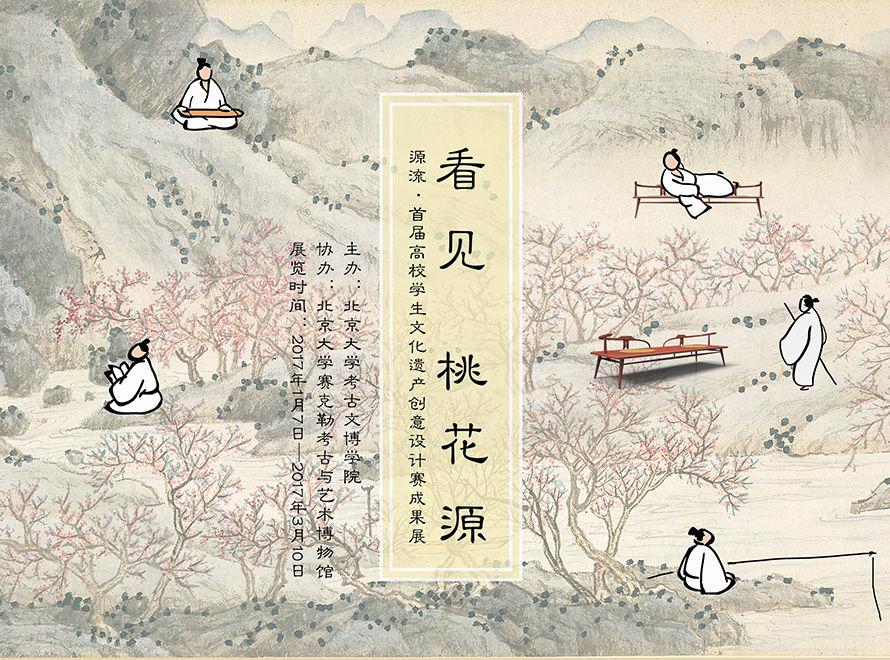 看见桃花源
源流·首届高校学生文化遗产创意设计赛成果展
主办：北京大学考古文博学院
协办：北京大学赛克勒考古与艺术博物馆
展览时间：2017年1月7日—2017年3月10日